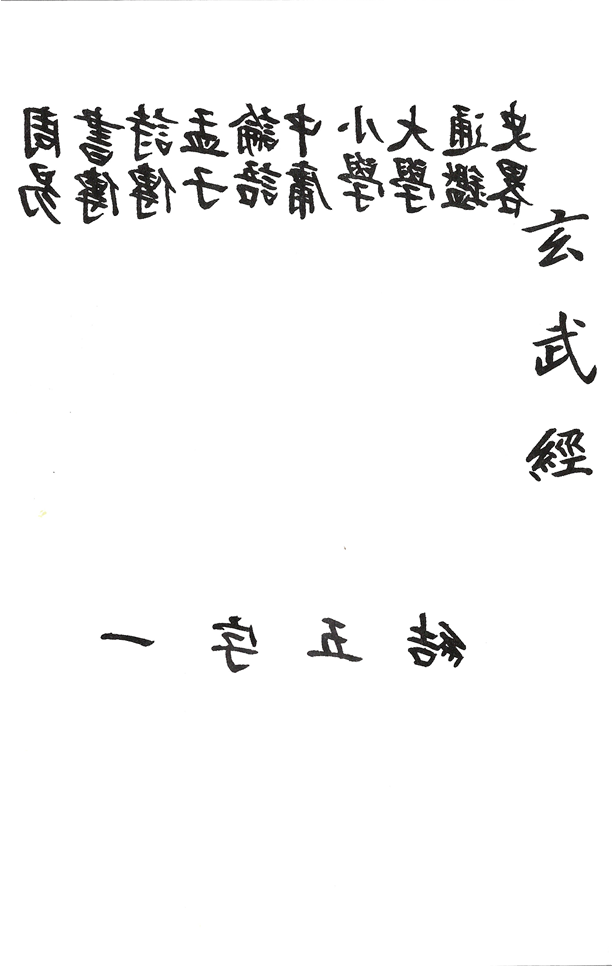 史畧
通鑑
大學
小學
中庸
論語
孟子
詩傳
書傳
周易
玄武經
一字五結